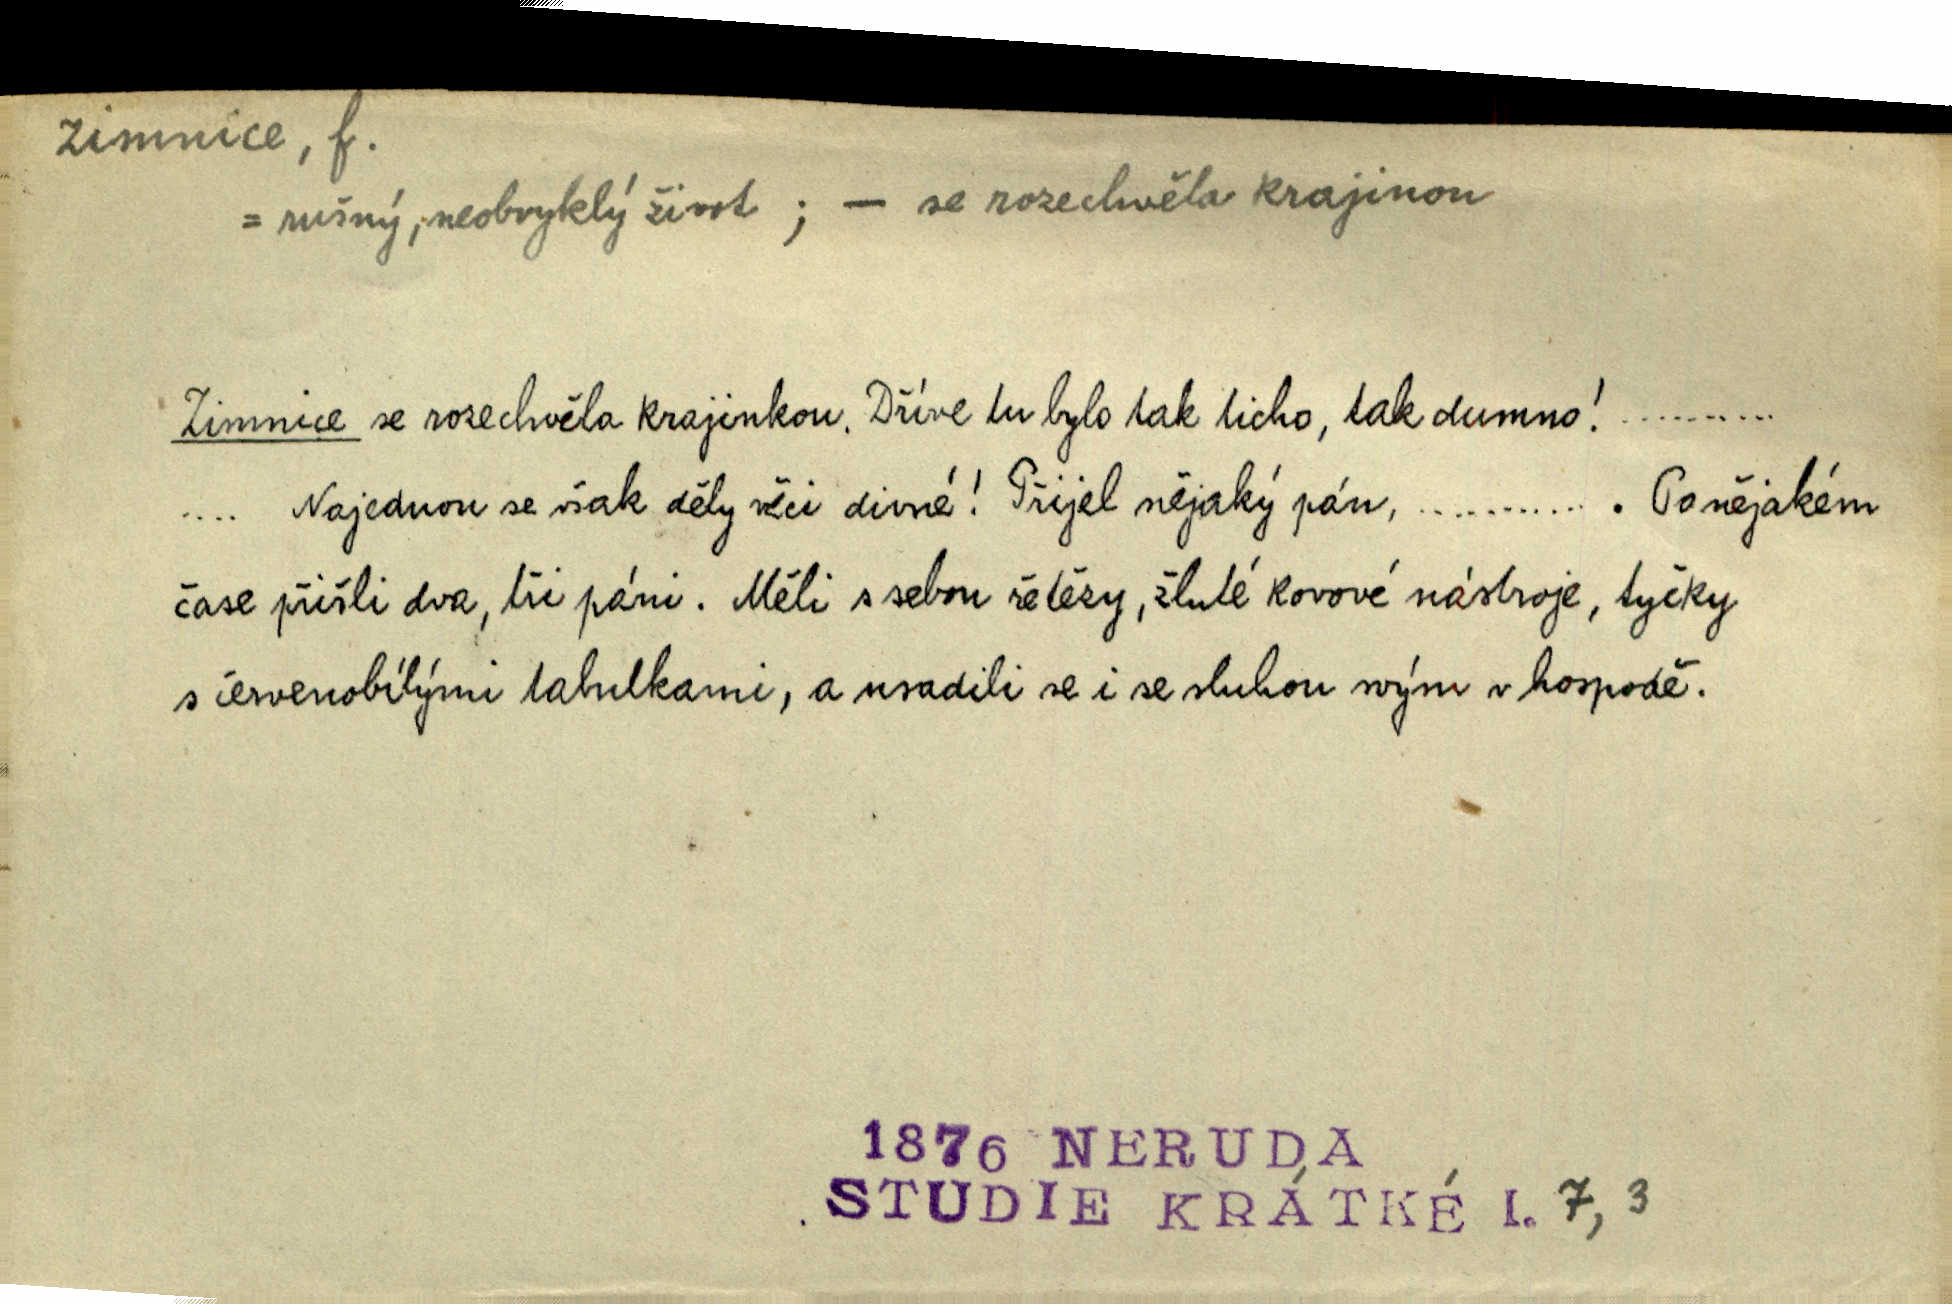 zimnice, f.
= rušný, neobvyklý život ; — se rozechvěla krajinou
Zimnice se rozechvěla krajinkou. Dříve tu bylo tak ticho, tak dumno! ..........
.... Najednou se však děly věci divné! Přijel nějaký pán, ............ . Po nějakém
čase přišli dva, tři páni. Měli s sebou řetězy, žluté kovové nástroje, tyčky
s červenobílými tabulkami, a usadili se i se sluhou svým v hospodě.
1876 NERUDA
STUDIE KRÁTKÉ I. 7, 3